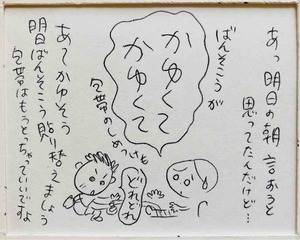 あっ明日の朝言おうと
思ってたんだけど…
ばんそうこうが
かゆくて
かゆくて
包帯のしめつけも
どれどれ
あーかゆそう
明日ばんそうこう貼り替えましょう
包帯はもうとっちゃっていいですよ